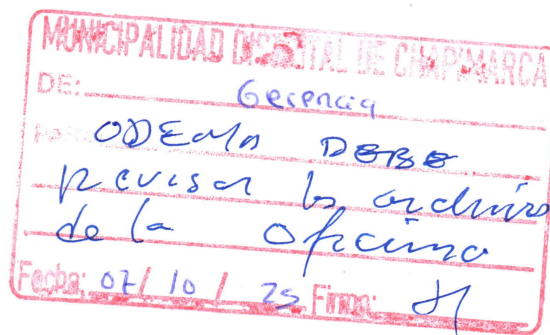 MUNICIPALIDAD DISTRITAL DE CHAPIMARCA
DE: Gerencia
ODEMA DEBE
revisar lo archivos
de la Oficina
Fecha: 07/ 10 / 25 Firma: